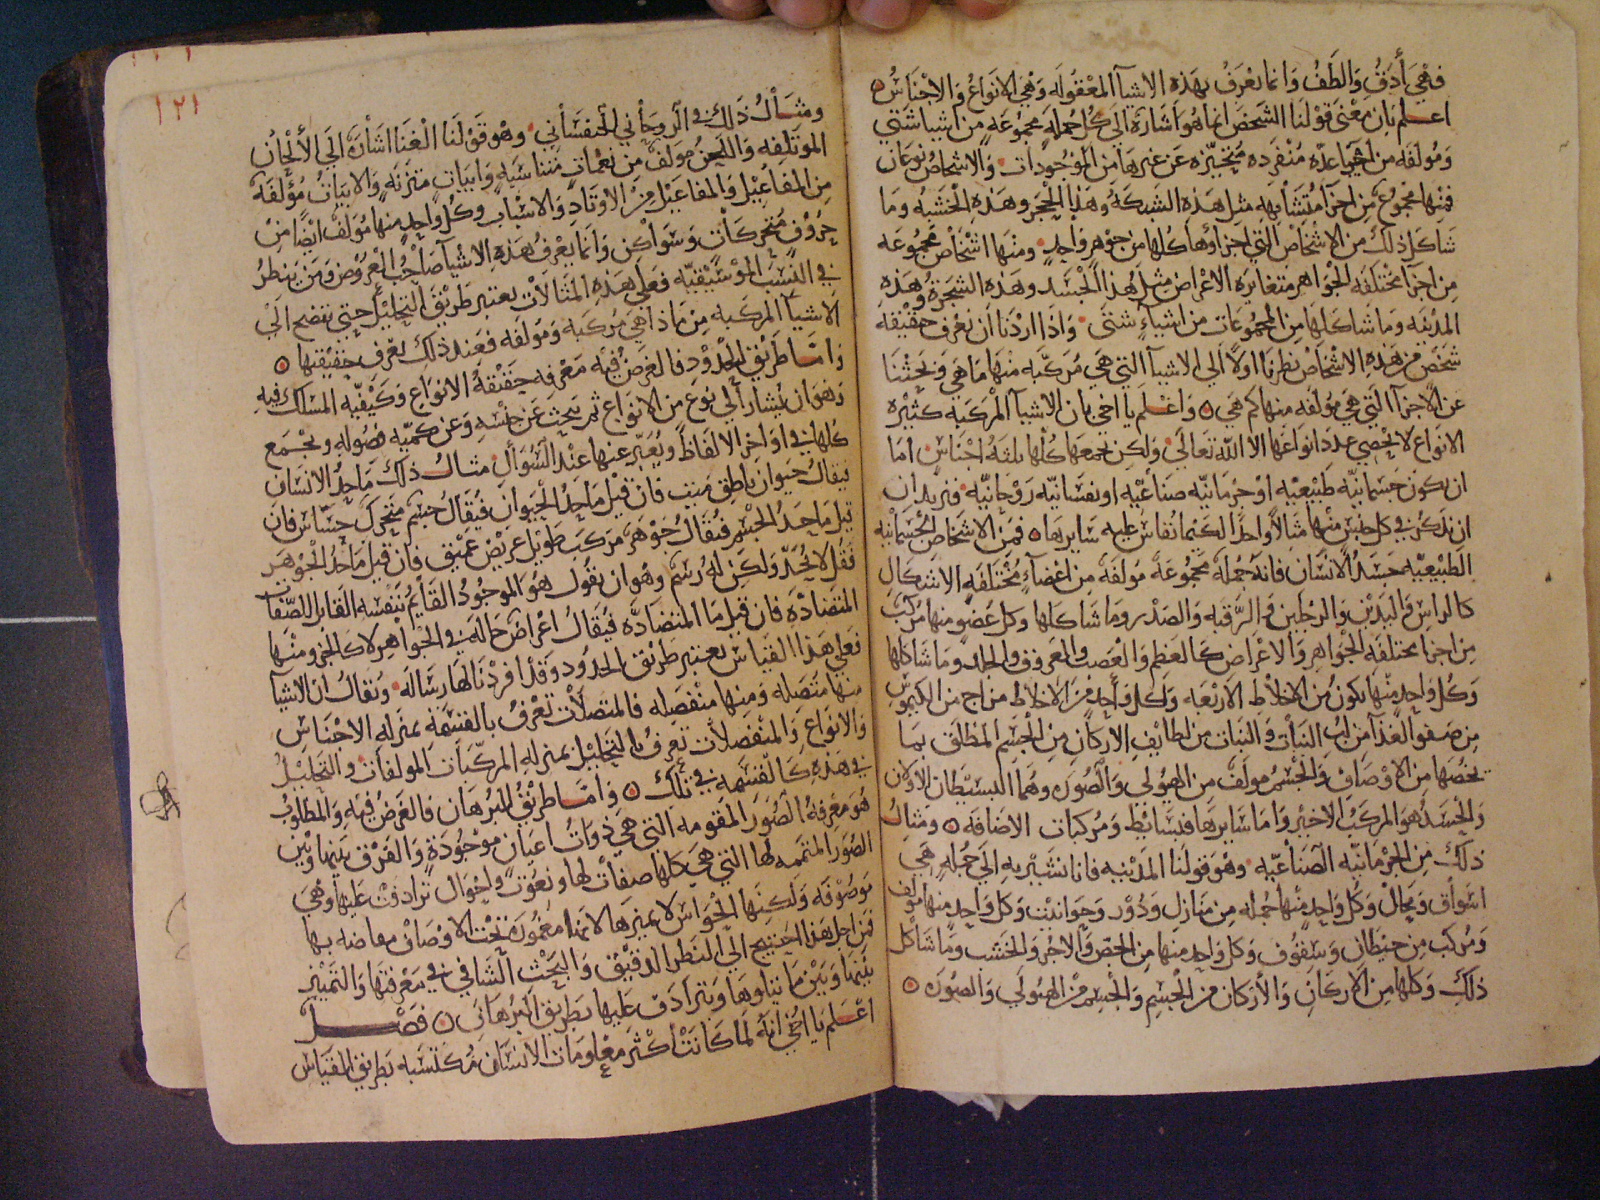 فهي أدق والطف وانما يعرف بهذه الاشيآ المعقوله وهي الانواع والاجناس
اعلم بان معنى قولنا الشخص انما هو اشارة الى كل جملة مجموعة من اشيا شتى
ومولفه من اجزا عدة منفرده متحيزه عن غيرها من الموجودات والاشخاص نوعان
فمنها مجموع من اجزا متشابهه مثل هذه السبكة وهذا الحجر وهذه الخشبه وما
شاكل ذلك من الاشخاص التي اجزاؤها كلها من جوهر واحد ومنها اشخاص مجموعه
من اجزا مختلفه الجواهر متغايره الاعراض مثل هذا الجسد وهذه الشجرة وهذه
المدينه وما شاكلها من المجموعات من اشياء شتى واذا اردنا ان نعرف حقيقه
شخص من هذه الاشخاص نظرنا اولا الى الاشيآ التي هي مركبه منها ما هي وبحثنا
عن الاجزآ التي هي مولفه منها كم هي واعلم يا اخي بان الاشيآ المركبه كثيره
الانواع لا يحصي عدد انواعها الا الله تعالى ولكن تجمعها كلها ثلثة اجناس اما
ان يكون جسمانيه طبيعيه او جرمانيه صناعيه او نفسانيه روحانيه فنريد ان
ان نذكر في كل جنس منها مثالا واحدا لكيما تقاس عليه سايرها فمن الاشخاص الجسمانيه
الطبيعيه جسد الانسان فانه جملة مجموعة مولفة من اعضآء مختلفه الاشكال
كالراس واليدين والرجلين والرقبه والصدر وما شاكلها وكل عضو منها مركب
من اجزا مختلفه الجواهر والاعراض كالعظم والعصب والعروق والجلد وما شاكلها
وكل واحد منها يكون من الاخلاط الاربعه وكل واحد من الاخلاط مزاج من الكيموس
من صفو الغذآ من لب النبات والنبات من لطايف الاركان من الجسم المطلق بما
يخصها من الاوصاف والجسم مولف من الهيولى والصوره وهما البسيطان الاولان
والجسد هو المركب الاخير واما سايرها فبسايط ومركبات الاضافه ومثال
ذلك من الجرمانيه الصناعيه وهو قولنا المدينه فانا نشير به الى جملة هي
اسواق ومحال وكل واحد منها جمله من منازل ودور وحوانيت وكل واحد منها مولف
ومركب من حيطان وسقوف وكل واحد منها من الجص والاجر والخشب وما شاكل
ذلك وكلها من الاركان والاركان من الجسم والجسم من الهيولى والصوره
١٢١
ومثال ذلك في الروحاني النفساني وهو قولنا الغنا اشارة الى الالحان
الموتلفه واللحن مولف من نغمات متناسبه وابيات متزنه والابيات مؤلفة
من المفاعيل والمفاعيل من الاوتاد والاسباب وكل واحد منها مولف ايضا من
حروف متحركات وسواكن وانما يعرف هذه الاشيا صاحب العروض ومن ينظر
في النسب الموسيقيه فعلى هذه المثالات يعتبر طريق التحليل حتى يتضح الى
الاشيآ المركبه من ماذا هي مركبه ومولفه فعند ذلك يعرف حقيقتها
واما طريق الحدود فالغرض فيه معرفه حقيقة الانواع وكيفيه المسلك فيه
وهو ان يشار الى نوع من الانواع ثم يبحث عن جنسه وعن كميه فصوله ويجمع
كلها في اوآخر الالفاظ ويعبر عنها عند السوال مثال ذلك ما حد الانسان
فيقال حيوان ناطق ميت فان قيل ما حد الحيوان فيقال جسم متحرك حساس فان
قيل ما حد الجسم فيقال جوهر مركب طويل عريض عميق فان قيل ما حد الجوهر
فقل لا يحد ولكن له رسم وهو ان نقول هو الموجود القايم بنفسه القابل للصفات
المتضادة فان قيل ما المتضاده فيقال اعراض حالة في الجواهر لا كالجزو منها
فعلى هذا القياس يعتبر طريق الحدود وقد افردنا لها رسالة ويقال ان الاشيآ
منها متصله ومنها منفصله فالمتصلات تعرف بالقسمة بمنزله الاجناس
والانواع والمنفصلات تعرف بالتحليل بمنزله المركبات المولفات والتحليل
في هذه كالقسمه في تلك واما طريق البرهان فالغرض فيه والمطلوب
هو معرفة الصور المقومه التي هي ذوات اعيان موجودة والفرق بينها وبين
الصور المتممه لها التي هي كلها صفات لها ونعوت واحوال ترادفت عليها وهي
موصوفه ولكنها الحواس لا تميزها لانها مغمورة تحت الاوصاف
فمن اجل هذا احتيج الى النظر الدقيق والبحث الشافي في معرفتها والتمييز
بينها وبين ما يتلوها ويترادف عليها بطريق البرهان فصل
اعلم يا اخي انه لما كانت أكثر معلومات الانسان مكتسبه بطريق القياس